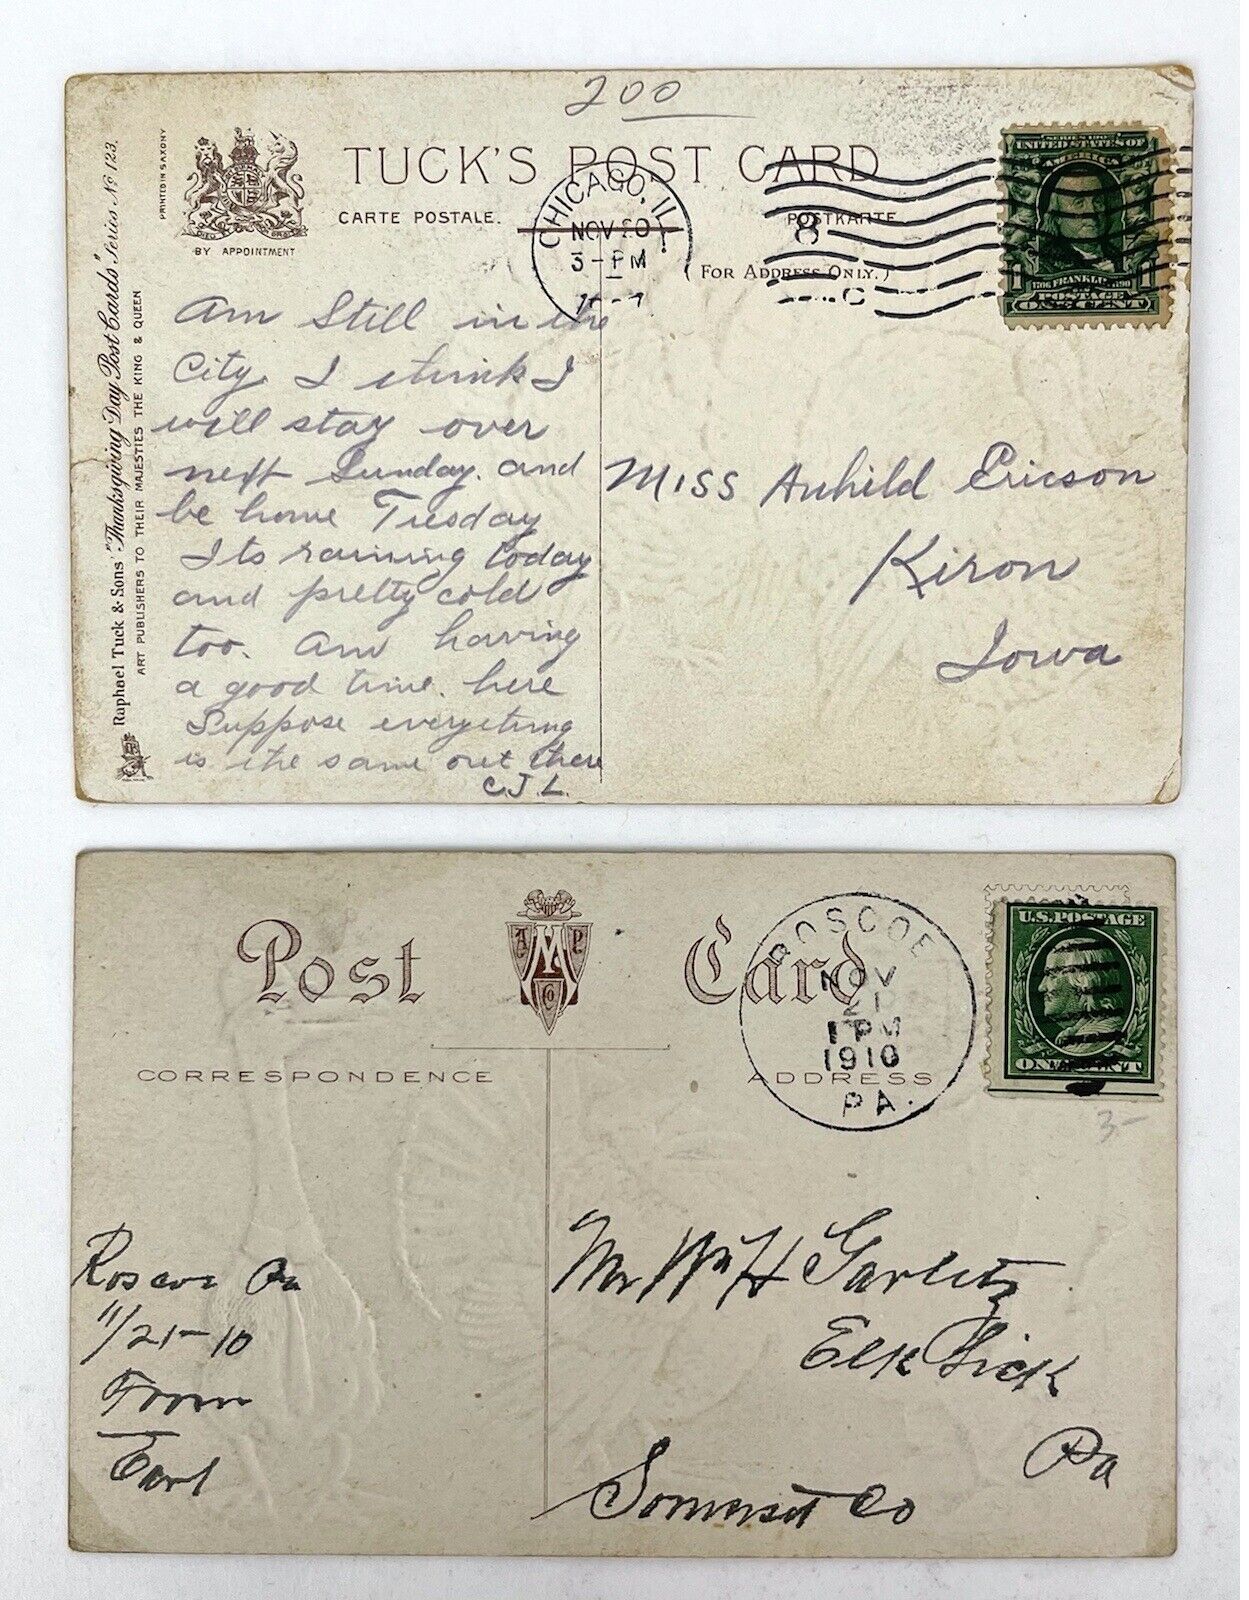 200
PRINTED IN SAXONY
BY APPOINTMENT
TUCK'S POST CARD
CARTE POSTALE.
POSTKARTE
(FOR ADDRESS ONLY.)
CHICAGO, ILL.
NOV 20
3-PM
8
C
SERIES 1902
UNITED STATES OF
AMERICA
1706 FRANKLIN 1790
POSTAGE
1 ONE CENT 1
Raphael Tuck & Sons' "Thanksgiving Day Post Cards" Series No 123.
ART PUBLISHERS TO THEIR MAJESTIES THE KING & QUEEN
Am Still in the
City. I think I
will stay over
next Sunday. and
be home Tuesday
Its raining today
and pretty cold
too. Am having
a good time. here
Suppose everything
is the same out there
C.J.L.
Miss Anhild Ericson
Kiron
Iowa
Post Card
A M P
Co
CORRESPONDENCE
ADDRESS
ROSCOE
NOV
21
1 PM
1910
PA.
U.S. POSTAGE
ONE CENT
3-
Roscoe Pa
11/21-10
From
Earl
Mr Wm H Garlitz
Elk Lick
Pa
Somerset Co